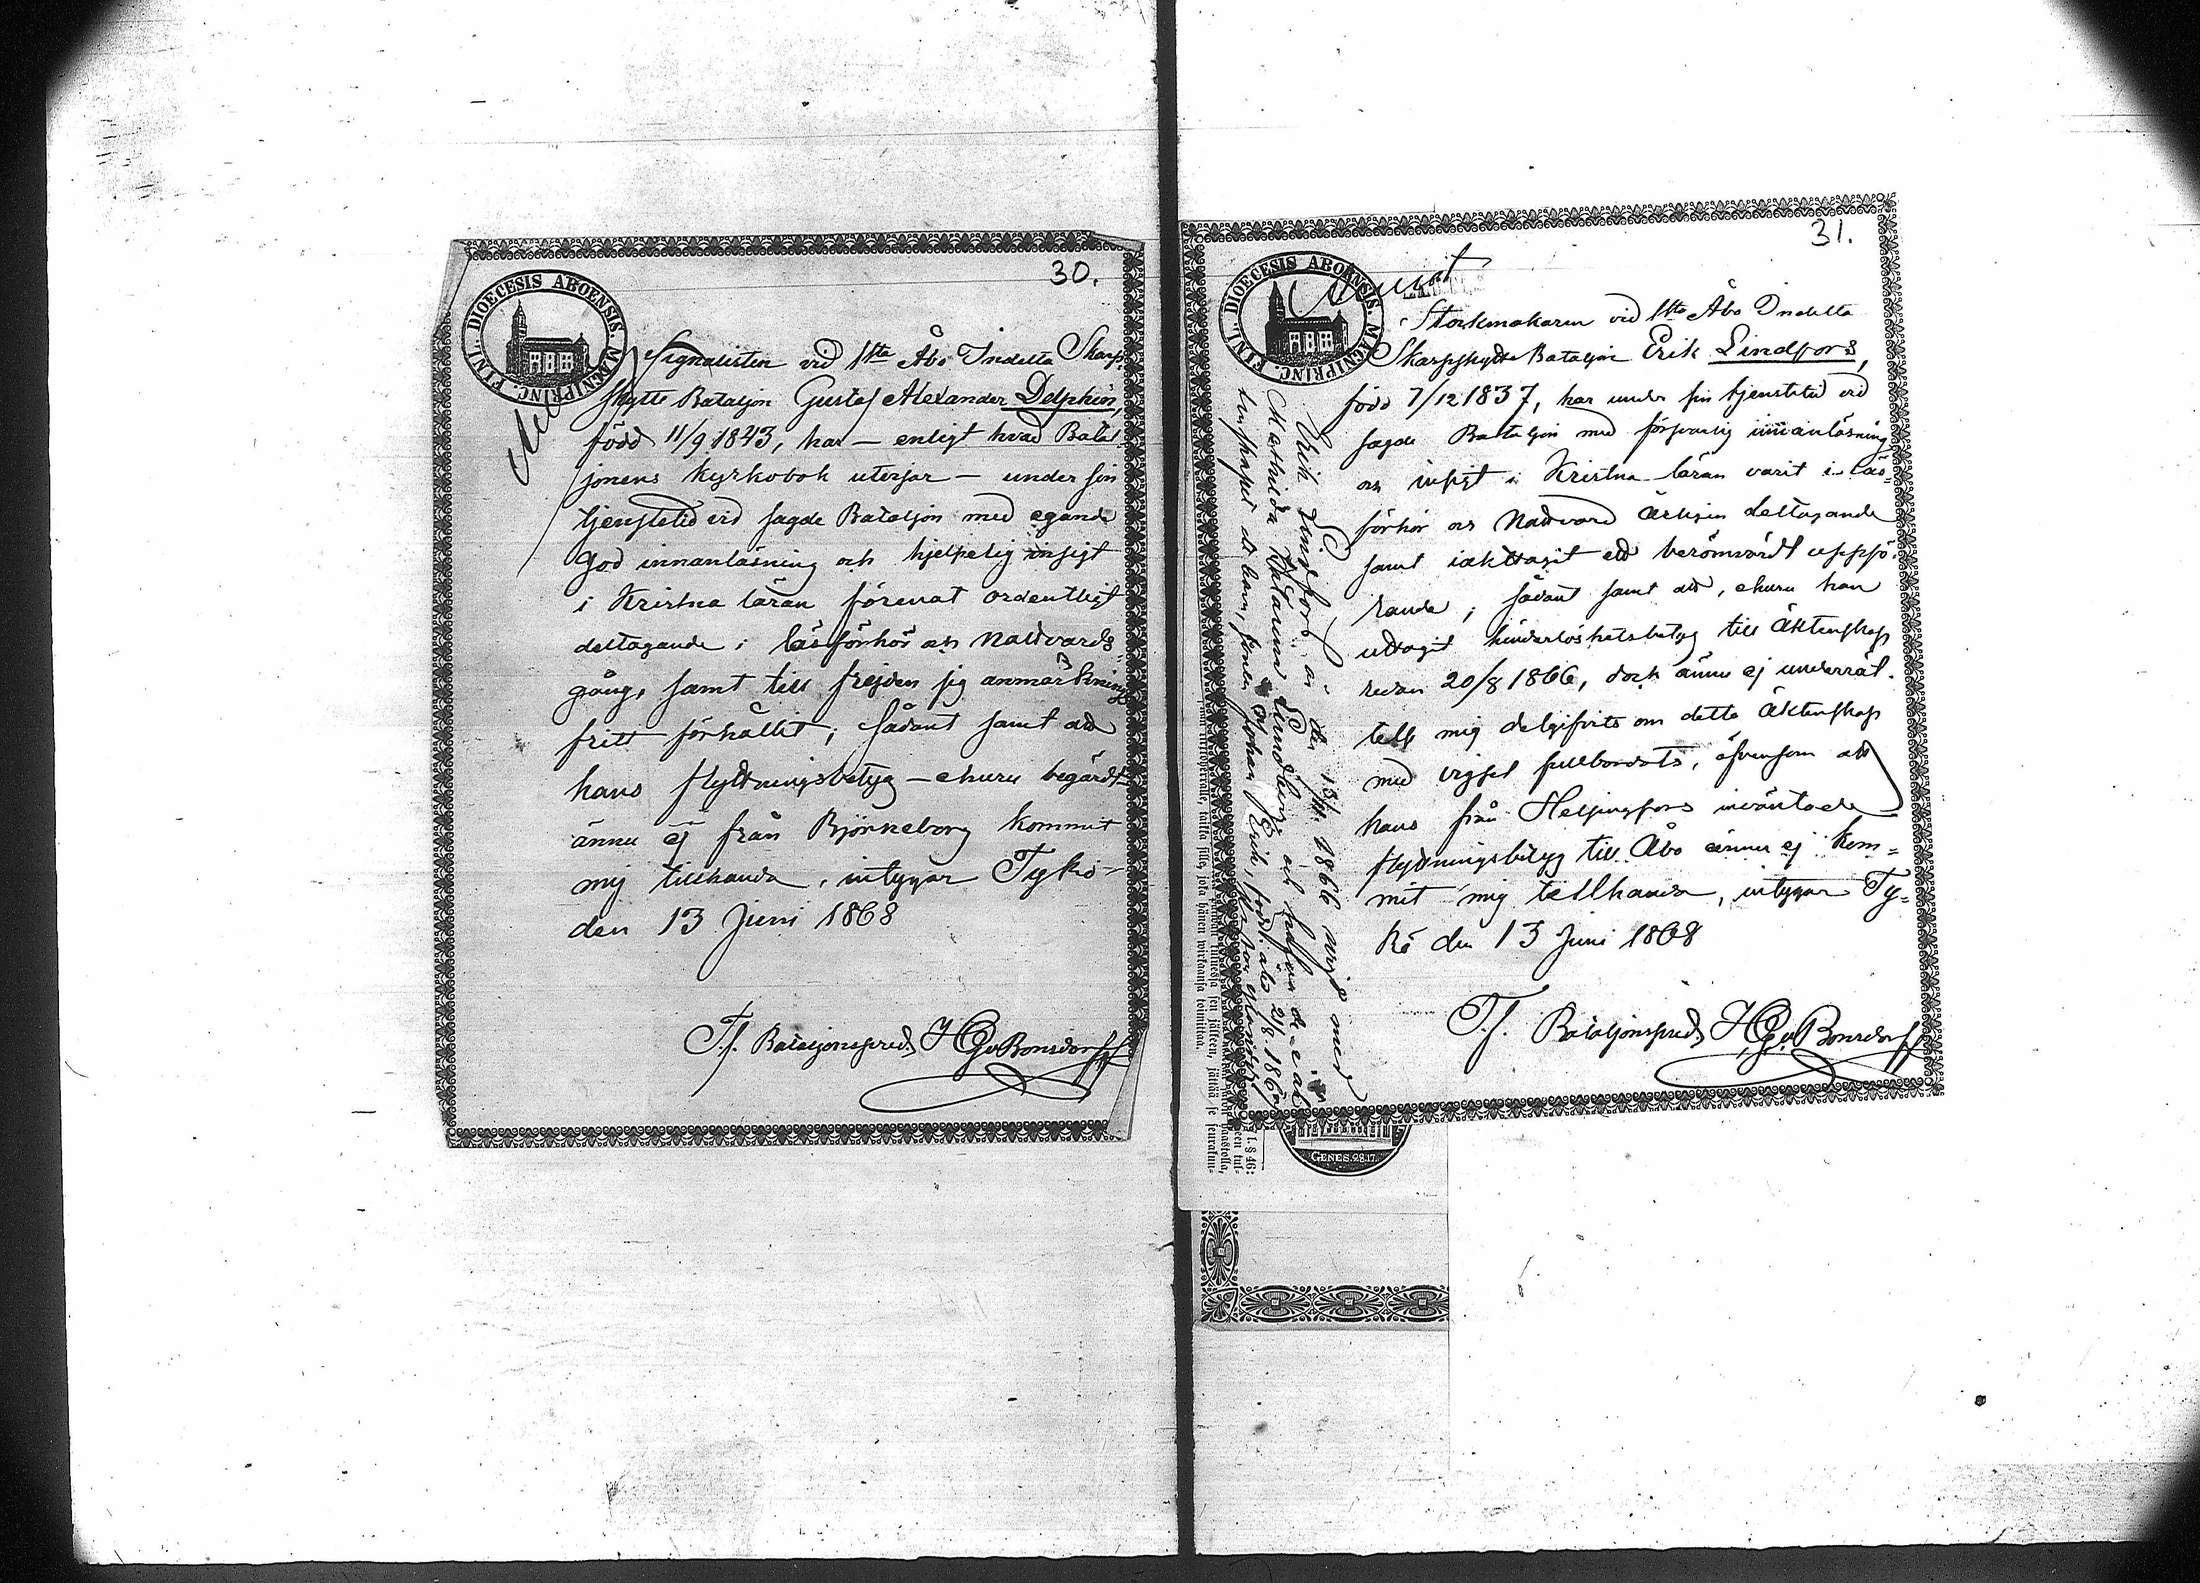 30.
DIOECESIS ABOENSIS. MAGNI PRINC. FINL.
Signalisten vid 1sta Åbo Indelta Skarp-
skytte Bataljon Gustaf Alexander Delphin,
född 11/9 1843, har — enligt hvad Batal-
jonens Kyrkobok utvisar — under sin
tjenstetid vid sagde Bataljon med egande
god innanläsning och hjelpelig insigt
i Kristna läran förenat ordentligt
deltagande i läsförhör och Nattvards-
gång, samt till frejden sig anmärknings
fritt förhållit; sådant samt att
hans flyttningsbetyg — ehuru begärdt —
ännu ej från Björneborg kommit
mig tillhanda, intygar Tykö
den 13 Juni 1868
T.f. Bataljonspred. HGvBonsdorff
31.
DIOECESIS ABOENSIS. MAGNI PRINC. FINL.
Stockmakaren vid 1sta Åbo Indelta
Skarpskytte Bataljon Erik Lindfors,
född 7/12 1837, har under sin tjenstetid vid
sagde Bataljon med försvarlig innanläsning
och insigt i Kristna läran varit i läs-
förhör och Nattvard årligen deltagande
samt iakttagit ett berömvärdt uppfö-
rande; sådant samt att, ehuru han
uttagit hinderlöshetsbetyg till Äktenskap
redan 20/8 1866, dock ännu ej underrät-
telse mig delgifvits om detta Äktenskap
med vigsel fullbordats, äfvensom att
hans från Helsingfors inväntade
flyttningsbetyg till Åbo ännu ej kom-
mit mig tillhanda, intygar Ty-
kö den 13 Juni 1868
T.f. Bataljonspred. HGvBonsdorff
Erik Lindfors är den 1866 vigd med
Mathilda Katarina Lindberg och hafva de i äk-
tenskapet ett barn, sonen Johan Erik, född
GENES. 28.17.